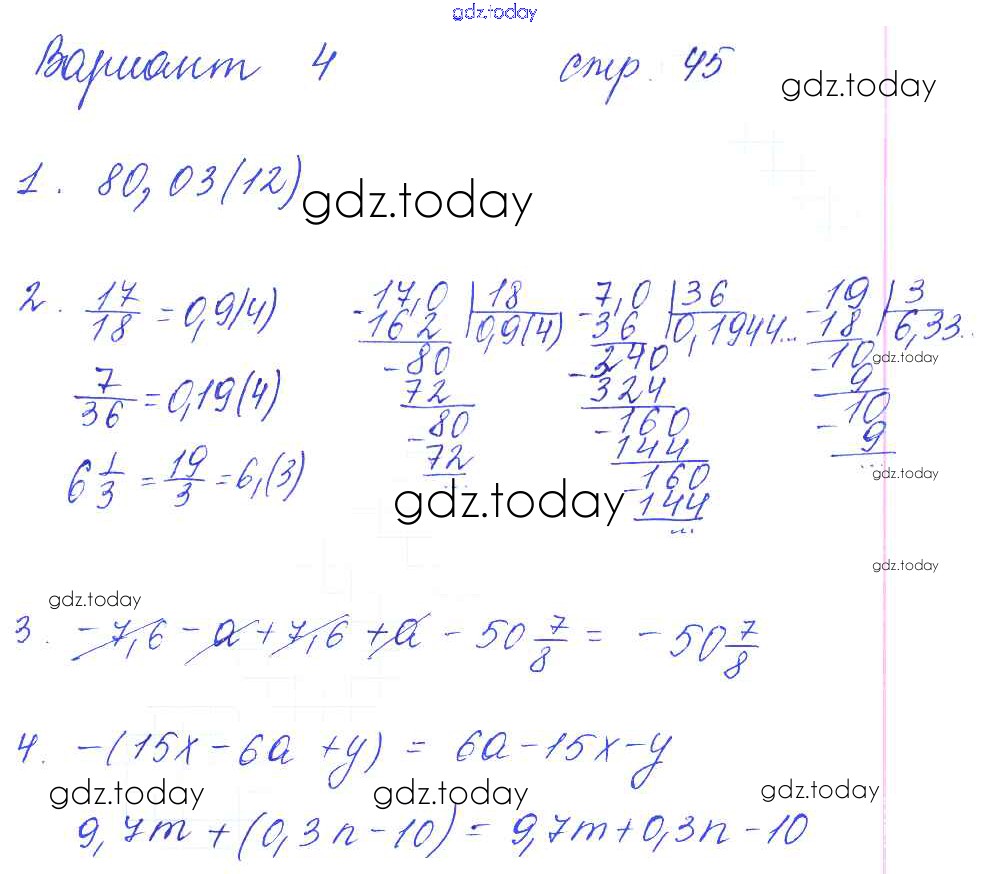 gdz.today
Вариант 4 стр. 45
gdz.today
1. 80,03(12)
gdz.today
2. 17/18 = 0,9(4)
7/36 = 0,19(4)
6 1/3 = 19/3 = 6,(3)
17,0 | 18
- 162 | 0,9(4)
- 80
72
- 80
72
...
- 7,0 | 36
36 | 0,1944...
- 340
324
- 160
144
- 160
144
...
- 19 | 3
18 | 6,33..
- 10
9
- 10
9
...
gdz.today
gdz.today
gdz.today
gdz.today
gdz.today
3. -7,6 - a + 7,6 + a - 50 7/8 = -50 7/8
4. -(15x - 6a + y) = 6a - 15x - y
gdz.today gdz.today gdz.today
9,7m + (0,3n - 10) = 9,7m + 0,3n - 10